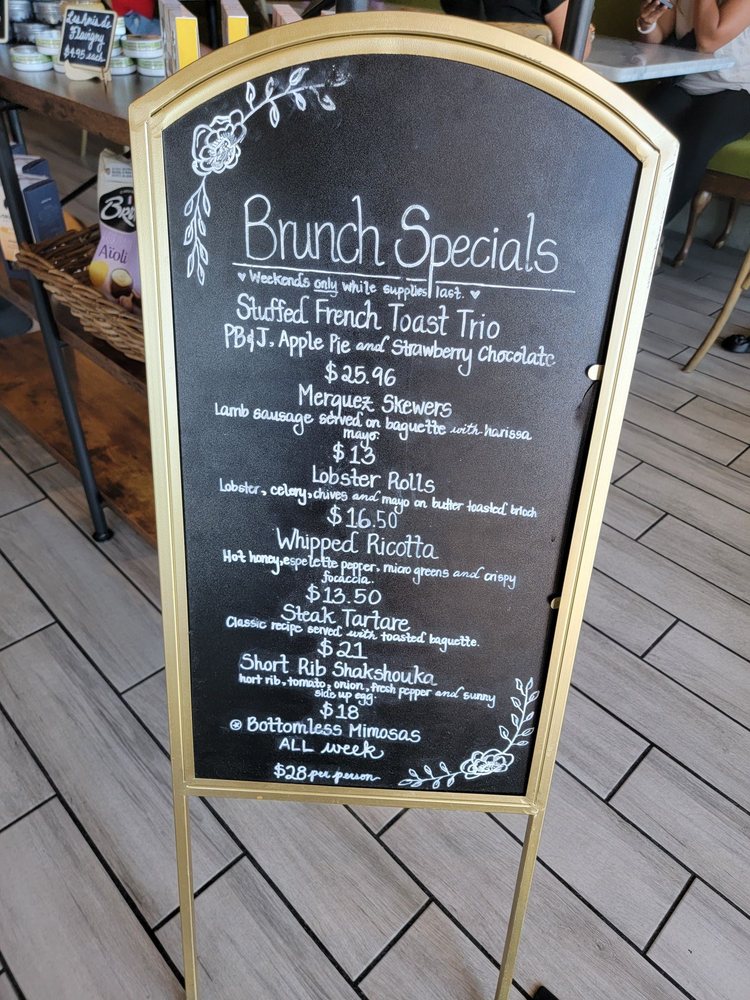 Les Anis de
Flavigny
$4.95 each
Bre
Aïoli
Brunch Specials
♥ Weekends only while supplies last. ♥
Stuffed French Toast Trio
PB&J, Apple Pie and Strawberry Chocolate
$25.96
Merguez Skewers
Lamb sausage served on baguette with harissa
mayo.
$13
Lobster Rolls
Lobster, celery, chives and mayo on butter toasted brioch
$16.50
Whipped Ricotta
Hot honey, espelette pepper, micro greens and crispy
focaccia.
$13.50
Steak Tartare
Classic recipe served with toasted baguette.
$21
Short Rib Shakshouka
hort rib, tomato, onion, fresh pepper and sunny
side up egg.
$18
Bottomless Mimosas
ALL week
$28 per person